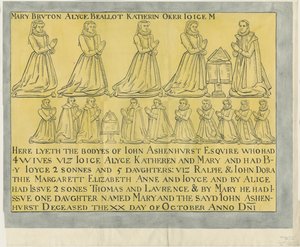 MARY BRVTON ALYCE BEALLOT KATHERIN OKER IOICE M
HERE LYETH THE BODYES OF IOHN ASHENHVRST ESQVIRE WHO HAD
4 WIVES VIZ IOICE ALYCE KATHEREN AND MARY AND HAD B-
Y IOYCE 2 SONNES AND 5 DAUGHTERS: VIZ RALPE & IOHN DORA
THIE MARGARETT ELIZABETH ANNE AND IOYCE AND BY ALICE
HAD ISSVE 2 SONES THOMAS AND LAVRENCE & BY MARY HE HAD I-
SSVE ONE DAUGHTER NAMED MARY AND THE SAYD IOHN ASHEN-
HVRST DECEASED THE XX DAY OF OCTOBER ANNO DNI